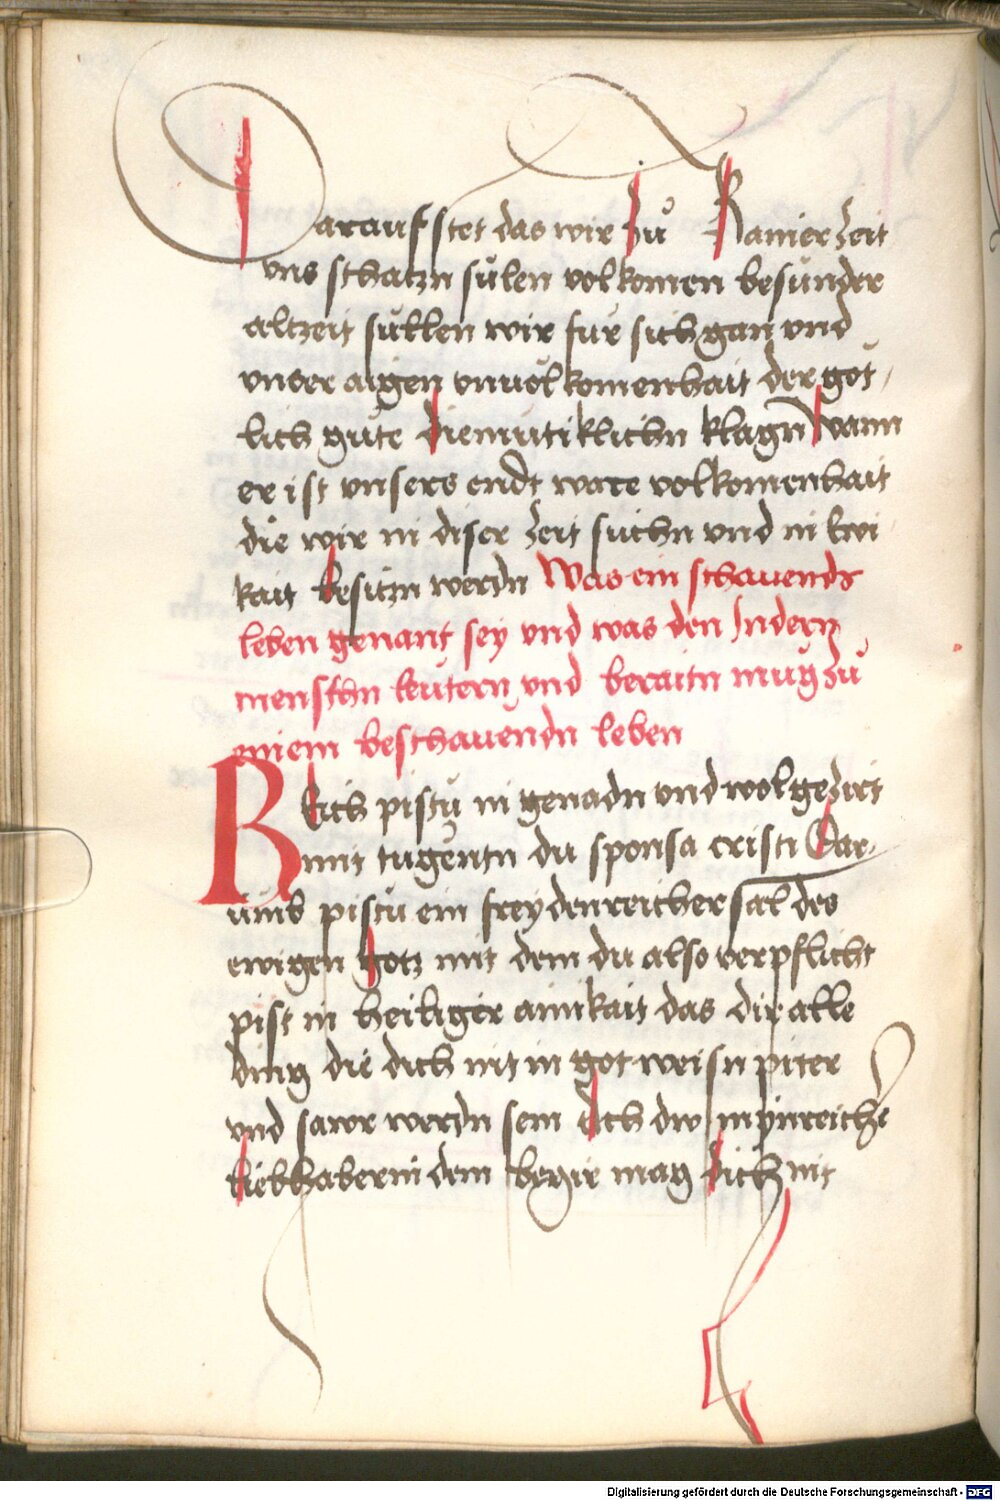 Darauf stet das wir zu kainer zeit
vns schatzn sülen volkomen besunder
altzeit süllen wir fur sich gan vnd
vnser aigen vnuolkomenhait der göt
lich güte diemütiklichn klagn wann
er ist vnsers endt ware volkomenhait
die wir in diser zeit suchn vnd in ewi
kait besitzn werdn Was ein schauends
leben genant sey vnd was den Indern
menschn leutern vnd beraitn mug zu
einem beschauendn leben
Reich pistu in genadn vnd wol gezirt
mit tugentn du sponsa cristi Dar
umb pistu ein freydenreicher sal des
ewigen gotz mit dem du also verpflicht
pist in heiliger ainikait das dir alle
ding die dich nit in got weisn piter
vnd sawr werdn sein Ach dw mynreiche
liebhaberin dem begir mag dich nit
Digitalisierung gefördert durch die Deutsche Forschungsgemeinschaft - DFG